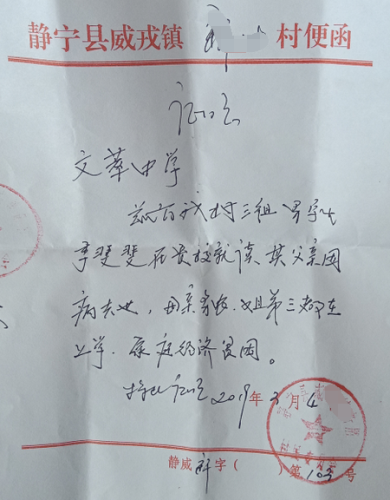 静宁县威戎镇 村便函
证明
文萃中学
兹有我村三组 男学生
李斐斐在贵校就读,其父亲因
病去世,母亲务农,姐弟三都在
上学,家庭经济困
特此证明 2019年3月4
静威 字( )第103号